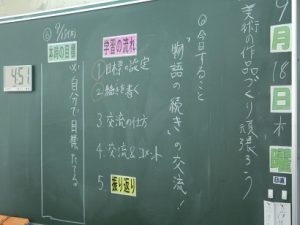 9月18日木曜
日直
美術の作品づくり頑張ろう
◎今日すること
"物語の続き"の交流!
学習の流れ
①目標の設定
②続きを書く
3.交流の仕方
4.交流&コメント
5.振り返り
本時の目標
自分で目標たてる
4:51